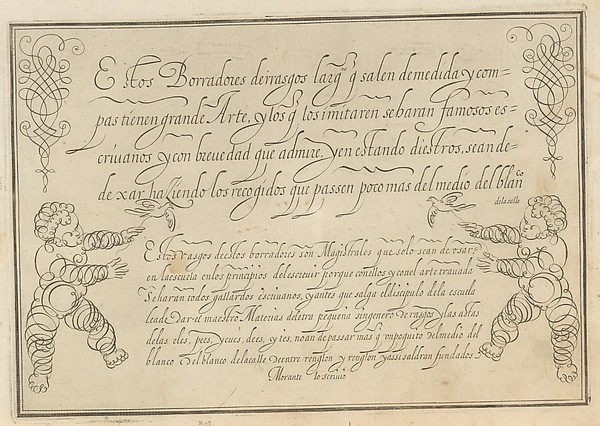 Estos Borradores de rrasgos larg.os q̃ salen de medida y com-
pas tienen grande Arte, y los q̃ los imitaren se haran famosos es-
criuanos y con breuedad que admire, y en estando diestros, se an de
de xar haziendo los recogidos que passen poco mas del medio del blan.co
de la calle
Estos rasgos de estos borradores son Magistrales que solo se an de vsar
en la escuela en los principios de le escreuir porque con ellos y con el arte trauada
Se haran todos gallardos escriuanos, y antes que salga el discipulo de la escuela
le a de dar el maestro Materias de letra pequena sin genero de rasgos y las astas
de las eles, pees, y cues, dees, y tes, no an de passar mas q̃ un poquito del medio del
blanco del blanco de la calle de entre renglon y renglon y assi saldran fundados
Morante lo scriuio